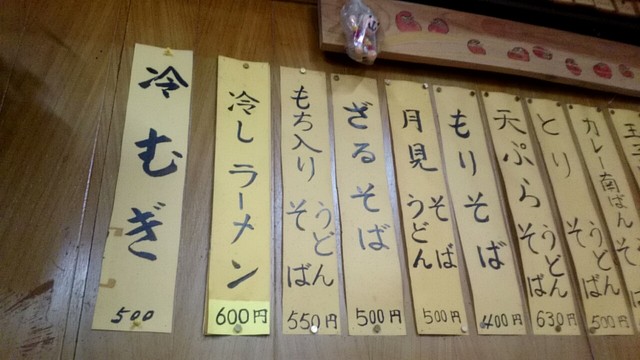 冷むぎ
500
冷しラーメン
600円
もち入り
うどん
そば
550円
ざるそば
500円
月見
そば
うどん
500円
もりそば
400円
天ぷらそば
とり
うどん
そば
630円
カレー南ばん
うどん
そば
500円